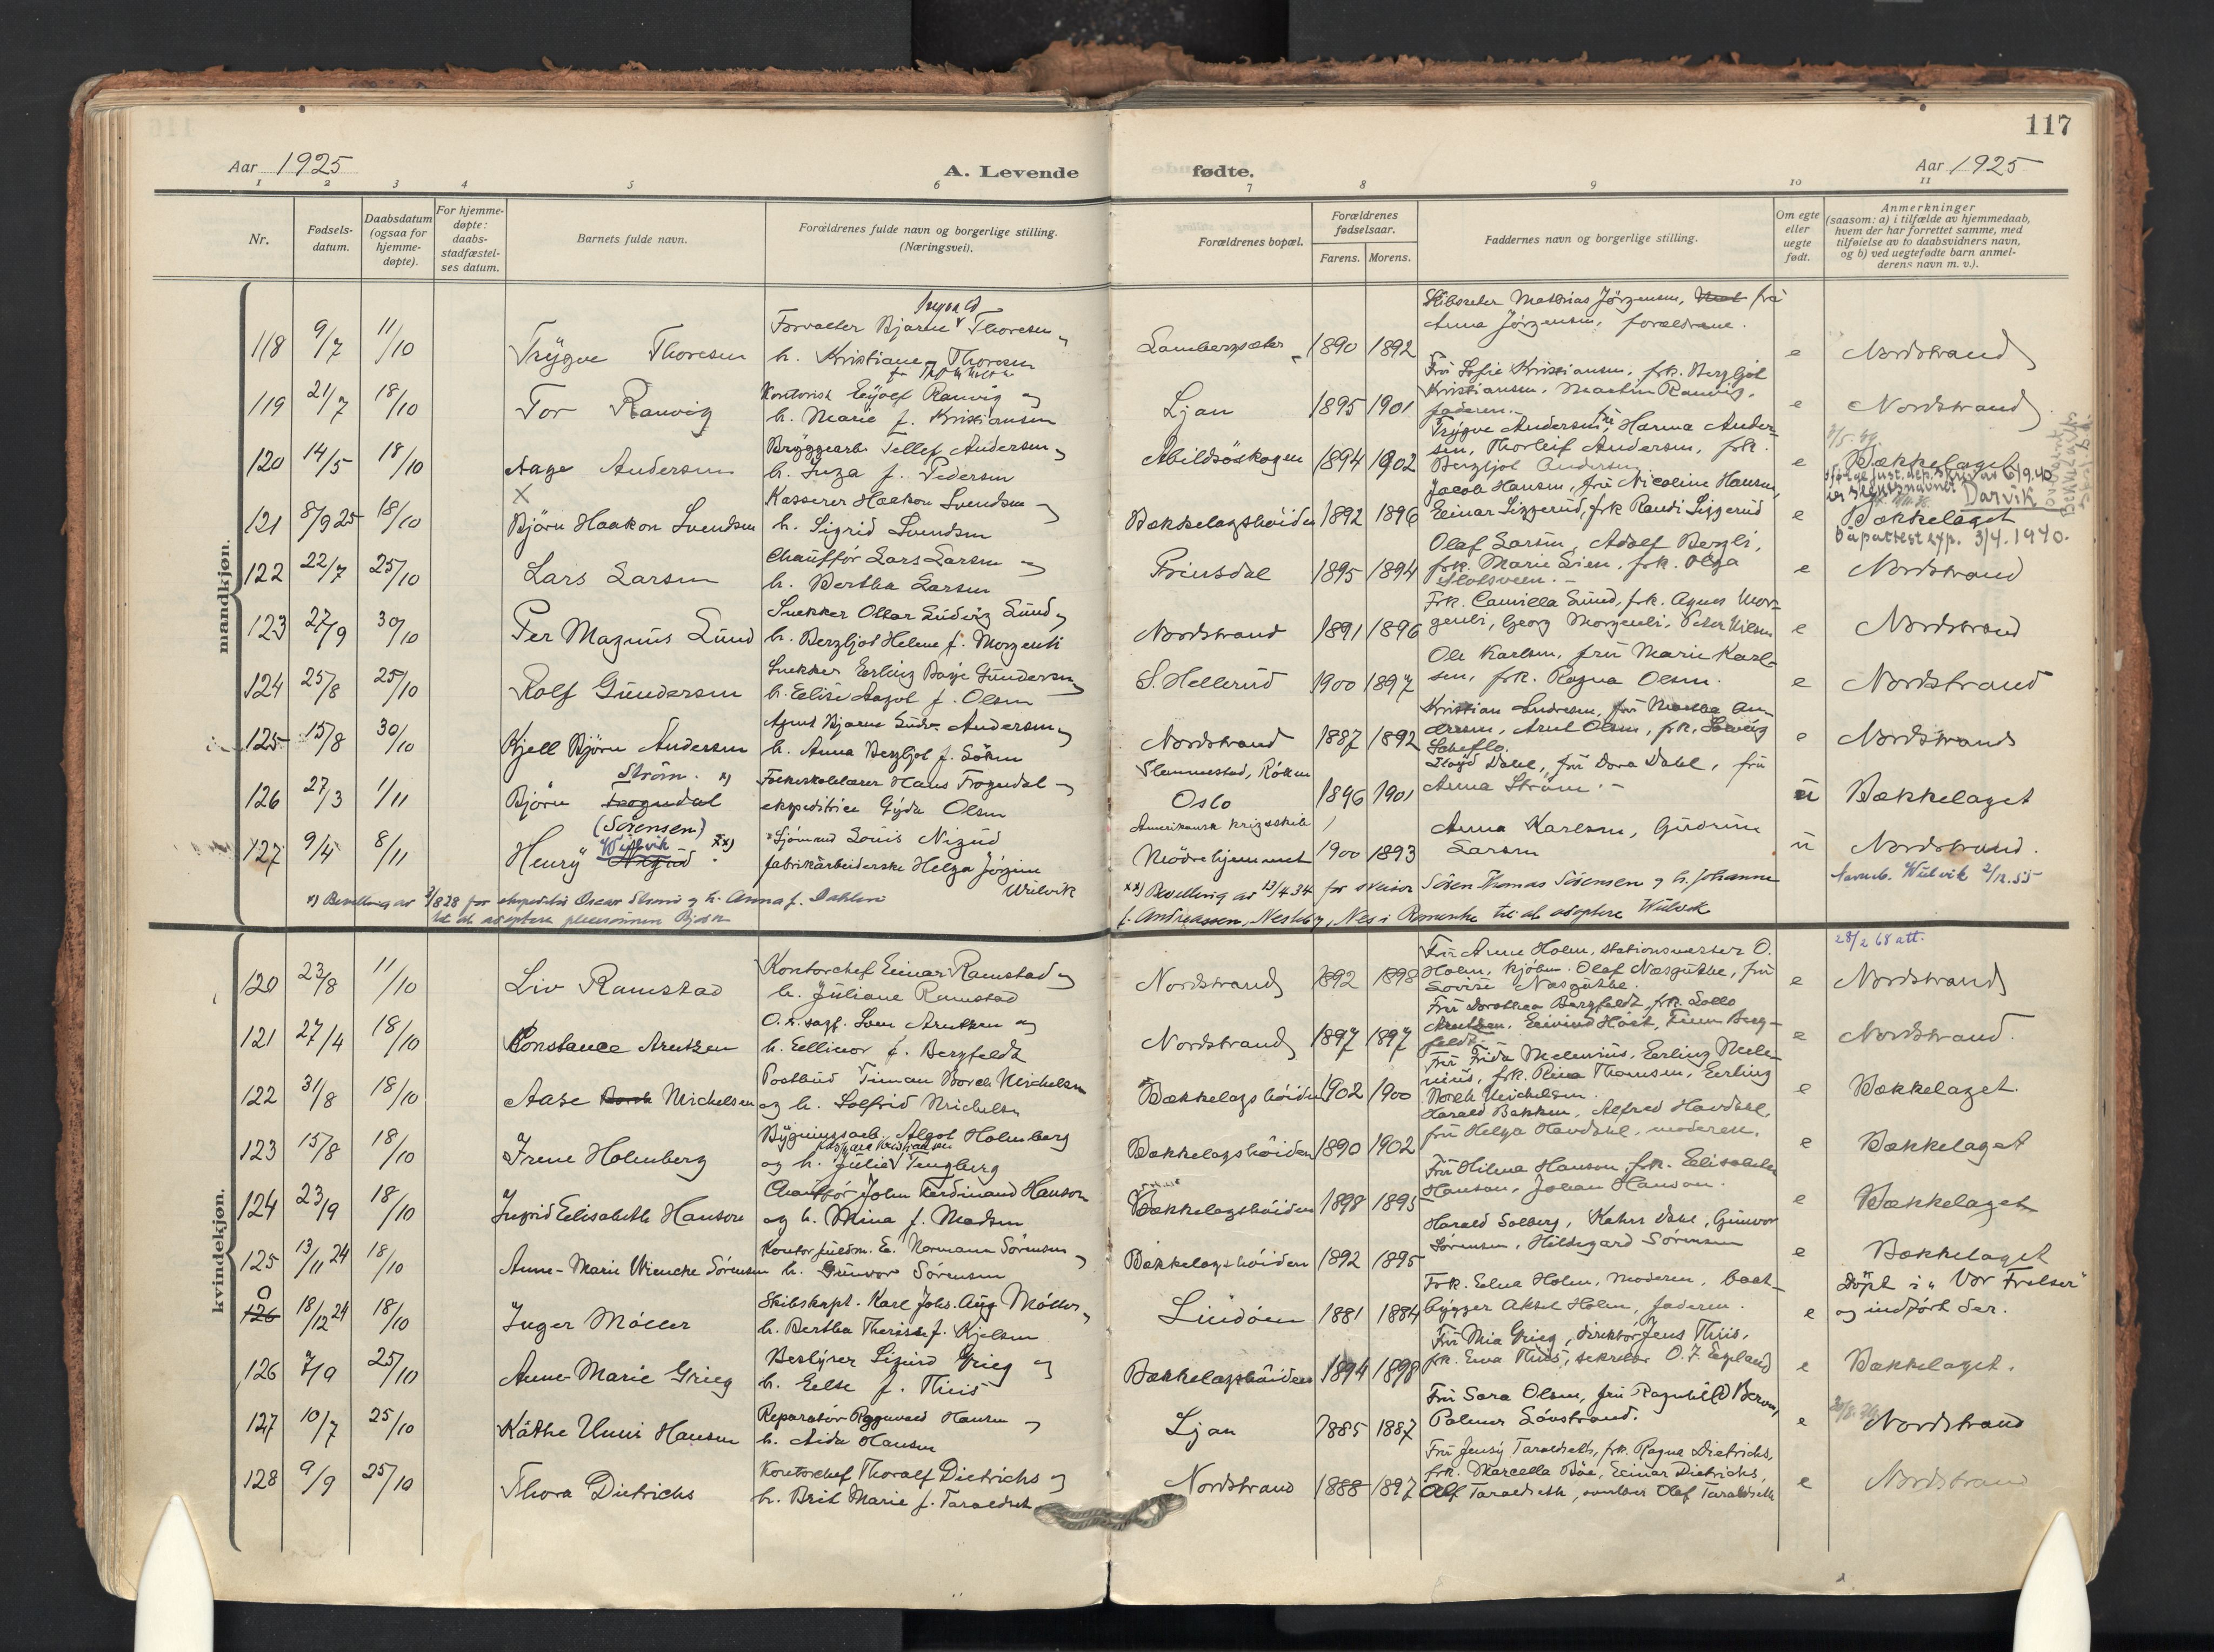 117
Aar 1925
A. Levende
fødte.
Aar 1925
1 2 3 4 5 6 7 8 9 10 11
Nr.
Fødsels-
datum.
Daabsdatum
(ogsaa for
hjemme-
døpte).
For hjemme-
døpte:
daabs-
stadfæstel-
ses datum.
Barnets fulde navn.
Forældrenes fulde navn og borgerlige stilling.
(Næringsvei).
Forældrenes bopæl.
Forældrenes
fødselsaar.
Farens. Morens.
Faddernes navn og borgerlige stilling.
Om egte
eller
uegte
født.
Anmerkninger
(saasom: a) i tilfælde av hjemmedaab,
hvem der har forrettet samme, med
tilføielse av to daabsvidners navn,
og b) ved uegtefødte barn anmel-
derens navn m. v.).
mandkjøn.
118 9/7 11/10 Trygve Thoresen
Forvalter Bjarne Thoresen
h. Kristiane Thoresen
Lambergsæter 1890 1892
Skibsreder Mathias Jörgensen, frü
Anna Jörgensen, forældrene.
e Nordstrand
119 21/7 18/10 Tor Ranvig
Kontorist Eyolf Ranvig og
h. Marie f. Kristiansen
Ljan 1895 1901
Frü Sofie Kristiansen, frk. Bergljot
Kristiansen, Martin Ranvig,
faderen.
e Nordstrand
120 14/5 18/10 Aage Andersen
Bryggearb. Tellef Andersen og
h. Inga f. Pedersen
Abildsöskogen 1894 1902
Trygve Andersen, Hanna Ander-
sen, Thorleif Andersen, frk.
Bergljot Andersen
e Bækkelaget
121 8/9 25 18/10 Björn Haakon Svendsen
Kasserer Haakon Svendsen og
h. Sigrid Svendsen
Bækkelagshöiden 1892 1896
Jacob Hansen, frü Nicoline Hansen,
Einar Liggerud, frk Randi Liggerud
e Bækkelaget
Darvik
Dåpattest exp. 3/4. 1940.
122 22/7 25/10 Lars Larsen
Chauffför Lars Larsen og
h. Bertha Larsen
Prinsdal 1895 1894
Olaf Larsen, Adolf Bergli,
frk. Marie Lien, frk. Olga
Slotsveen.
e Nordstrand
123 27/9 30/10 Per Magnus Lund
Snekker Ottar Ludvig Lund og
h. Bergljot Helene f. Morgenli
Nordstrand 1891 1896
Frk. Camilla Lund, frk. Agnes Mor-
genli, Georg Morgenli, Peter Nilsen
e Nordstrand
124 25/8 25/10 Rolf Gundersen
Snekker Erling Gundersen og
h. Elise Aagot f. Olsen
S. Hellerud 1900 1897
Ole Karlsen, frü Marie Karl-
sen, frk. Ragna Olsen.
e Nordstrand
125 15/8 30/10 Kjell Björn Andersen
Agent Bjarne Andersen og
h. Anna Bergljot f.
Nordstrand 1887 1892
e Nordstrand
126 27/3 1/11 Björn Frogndal Ström. x)
Folkeskolelærer Hans Frogndal og
ekspeditrice Gyda Olsen
Slemmestad, Röken
Oslo 1896 1901
Dahl, frü Dora Dahl, frü
Anna Ström.
ü Bækkelaget
127 9/4 8/11 Henry (Sørensen) Wiilvik xx)
Sjömand Louis Nigud
fabrikarbeiderske Helga Jörgine
Wiilvik
Amerikansk krigsskib
Mödrehjemmet 1900 1893
Anna Karlsen, Gudrun
Larsen
ü Nordstrand.
x) Bevilling av for ekspeditør Oscar Strøm og h. Anna f. Dahlen
til at adoptere pleiesönnen Bjørn
xx) Bevilling av 13/4 34 for Sören Thomas Sörensen og h. Johanne
f. Andreassen, Nes i Romerike til at adoptere Wiilvik
kvindekjøn.
28/2 68 att.
120 23/8 11/10 Liv Ramstad
Kontorchef Einar Ramstad og
h. Juliane Ramstad
Nordstrand 1892 1898
Frü Anne Holm, stationsmester O.
Holm, kjöbm. Olaf Næsguthe, frü
Lovise Næsguthe.
e Nordstrand
121 27/4 18/10 Constance Arntzen
O.r.sagf. Sven Arntzen og
h. Ellinor f. Bergfeldt
Nordstrand 1897 1897
Frü Dorothea Bergfeldt, frk. Lolle
Arntzen, Eivind Höst, Finn Berg-
feldt.
e Nordstrand.
122 31/8 18/10 Aase Michelsen
Postbud Timan Borch Michelsen
og h. Solfrid Michelsen
Bækkelagshöiden 1902 1900
Frü Frida Melenius, Erling Mele-
nius, frk. Rina Thomsen, Erling
Borch Michelsen.
e Bækkelaget.
123 15/8 18/10 Irene Holmberg
Bygningsarb. Algot Holmberg
og h. Julie Tengberg
Bækkelagshöiden 1890 1902
Harald Bakken, Alfred Havdahl,
frü Helga Havdahl, moderen.
e Bækkelaget
124 23/9 18/10 Ingrid Elisabeth Hanson
Chaufför John Ferdinand Hanson
og h. Mina f. Madsen
Bækkelagshöiden 1898 1895
Frü Hilma Hanson, frk. Elisabeth
Hanson, Johan Hanson.
e Bækkelaget
125 13/11 24 18/10 Anne-Marie Wiencke Sörensen
Kontorfuldm. E. Normann Sörensen og
h. Gunvor Sörensen
Bækkelagshöiden 1892 1895
Harald Solberg, Dahl, Gunvor
Sørensen, Hildegard Sørensen
e Bækkelaget
126 0 18/12 24 18/10 Inger Möller
Skibskapt. Karl Johs. Aug Möller og
h. Bertha Therese f. Kjelsen
Lindöen 1881 1884
Frk. Edna Holm, moderen, baat-
bygger Aksel Holm, faderen.
e Döpt i "Vor Frelser"
og indført der.
126 7/9 25/10 Anne-Marie Grieg
Bestyrer Sigurd Grieg og
h. Else f. Thiis
Bækkelagshöiden 1894 1898
Frü Mia Grieg, direktör Jens Thiis,
frk. Ewa Thiis, sekretær O. F. Egeland
e Bækkelaget.
127 10/7 25/10 Käthe Unni Hansen
Reparatör Ragnvald Hansen og
h. Aida Hansen
Ljan 1885 1887
Frü Sara Olsen, frü Ragnhild
Palmer Lövstrand.
e Nordstrand
128 9/9 25/10 Thora Dietrichs
Kontorchef Thoralf Dietrichs og
h. Brit Marie f. Taraldseth
Nordstrand 1888 1897
Frü Jensy Taraldseth, frk. Ragna Dietrichs,
frk. Marcella Böe, Einar Dietrichs,
Alf Taraldseth, Olaf Taraldseth
e Nordstrand